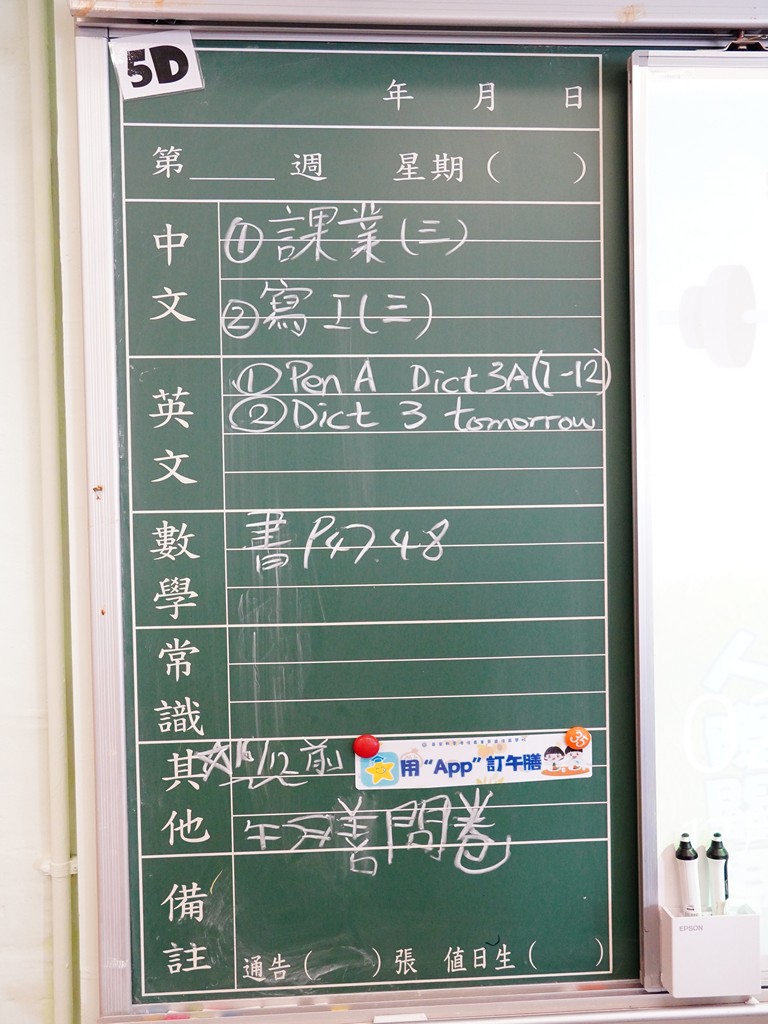 5D
年 月 日
第 週 星期( )
中文
①課業(三)
②寫工(三)
英文
①Pen A Dict 3A(7-12)
②Dict 3 tomorrow
數學
書 P47 48
常識
其他
☆16/12前
用“App”訂午膳
35
午膳問卷
備註
通告( )張 值日生( )
EPSON